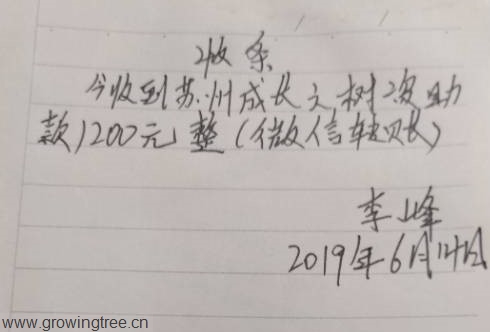 收条
今收到苏州成长之树资助
款1200元整(微信转账)
李峰
2019年6月14日
www.growingtree.cn